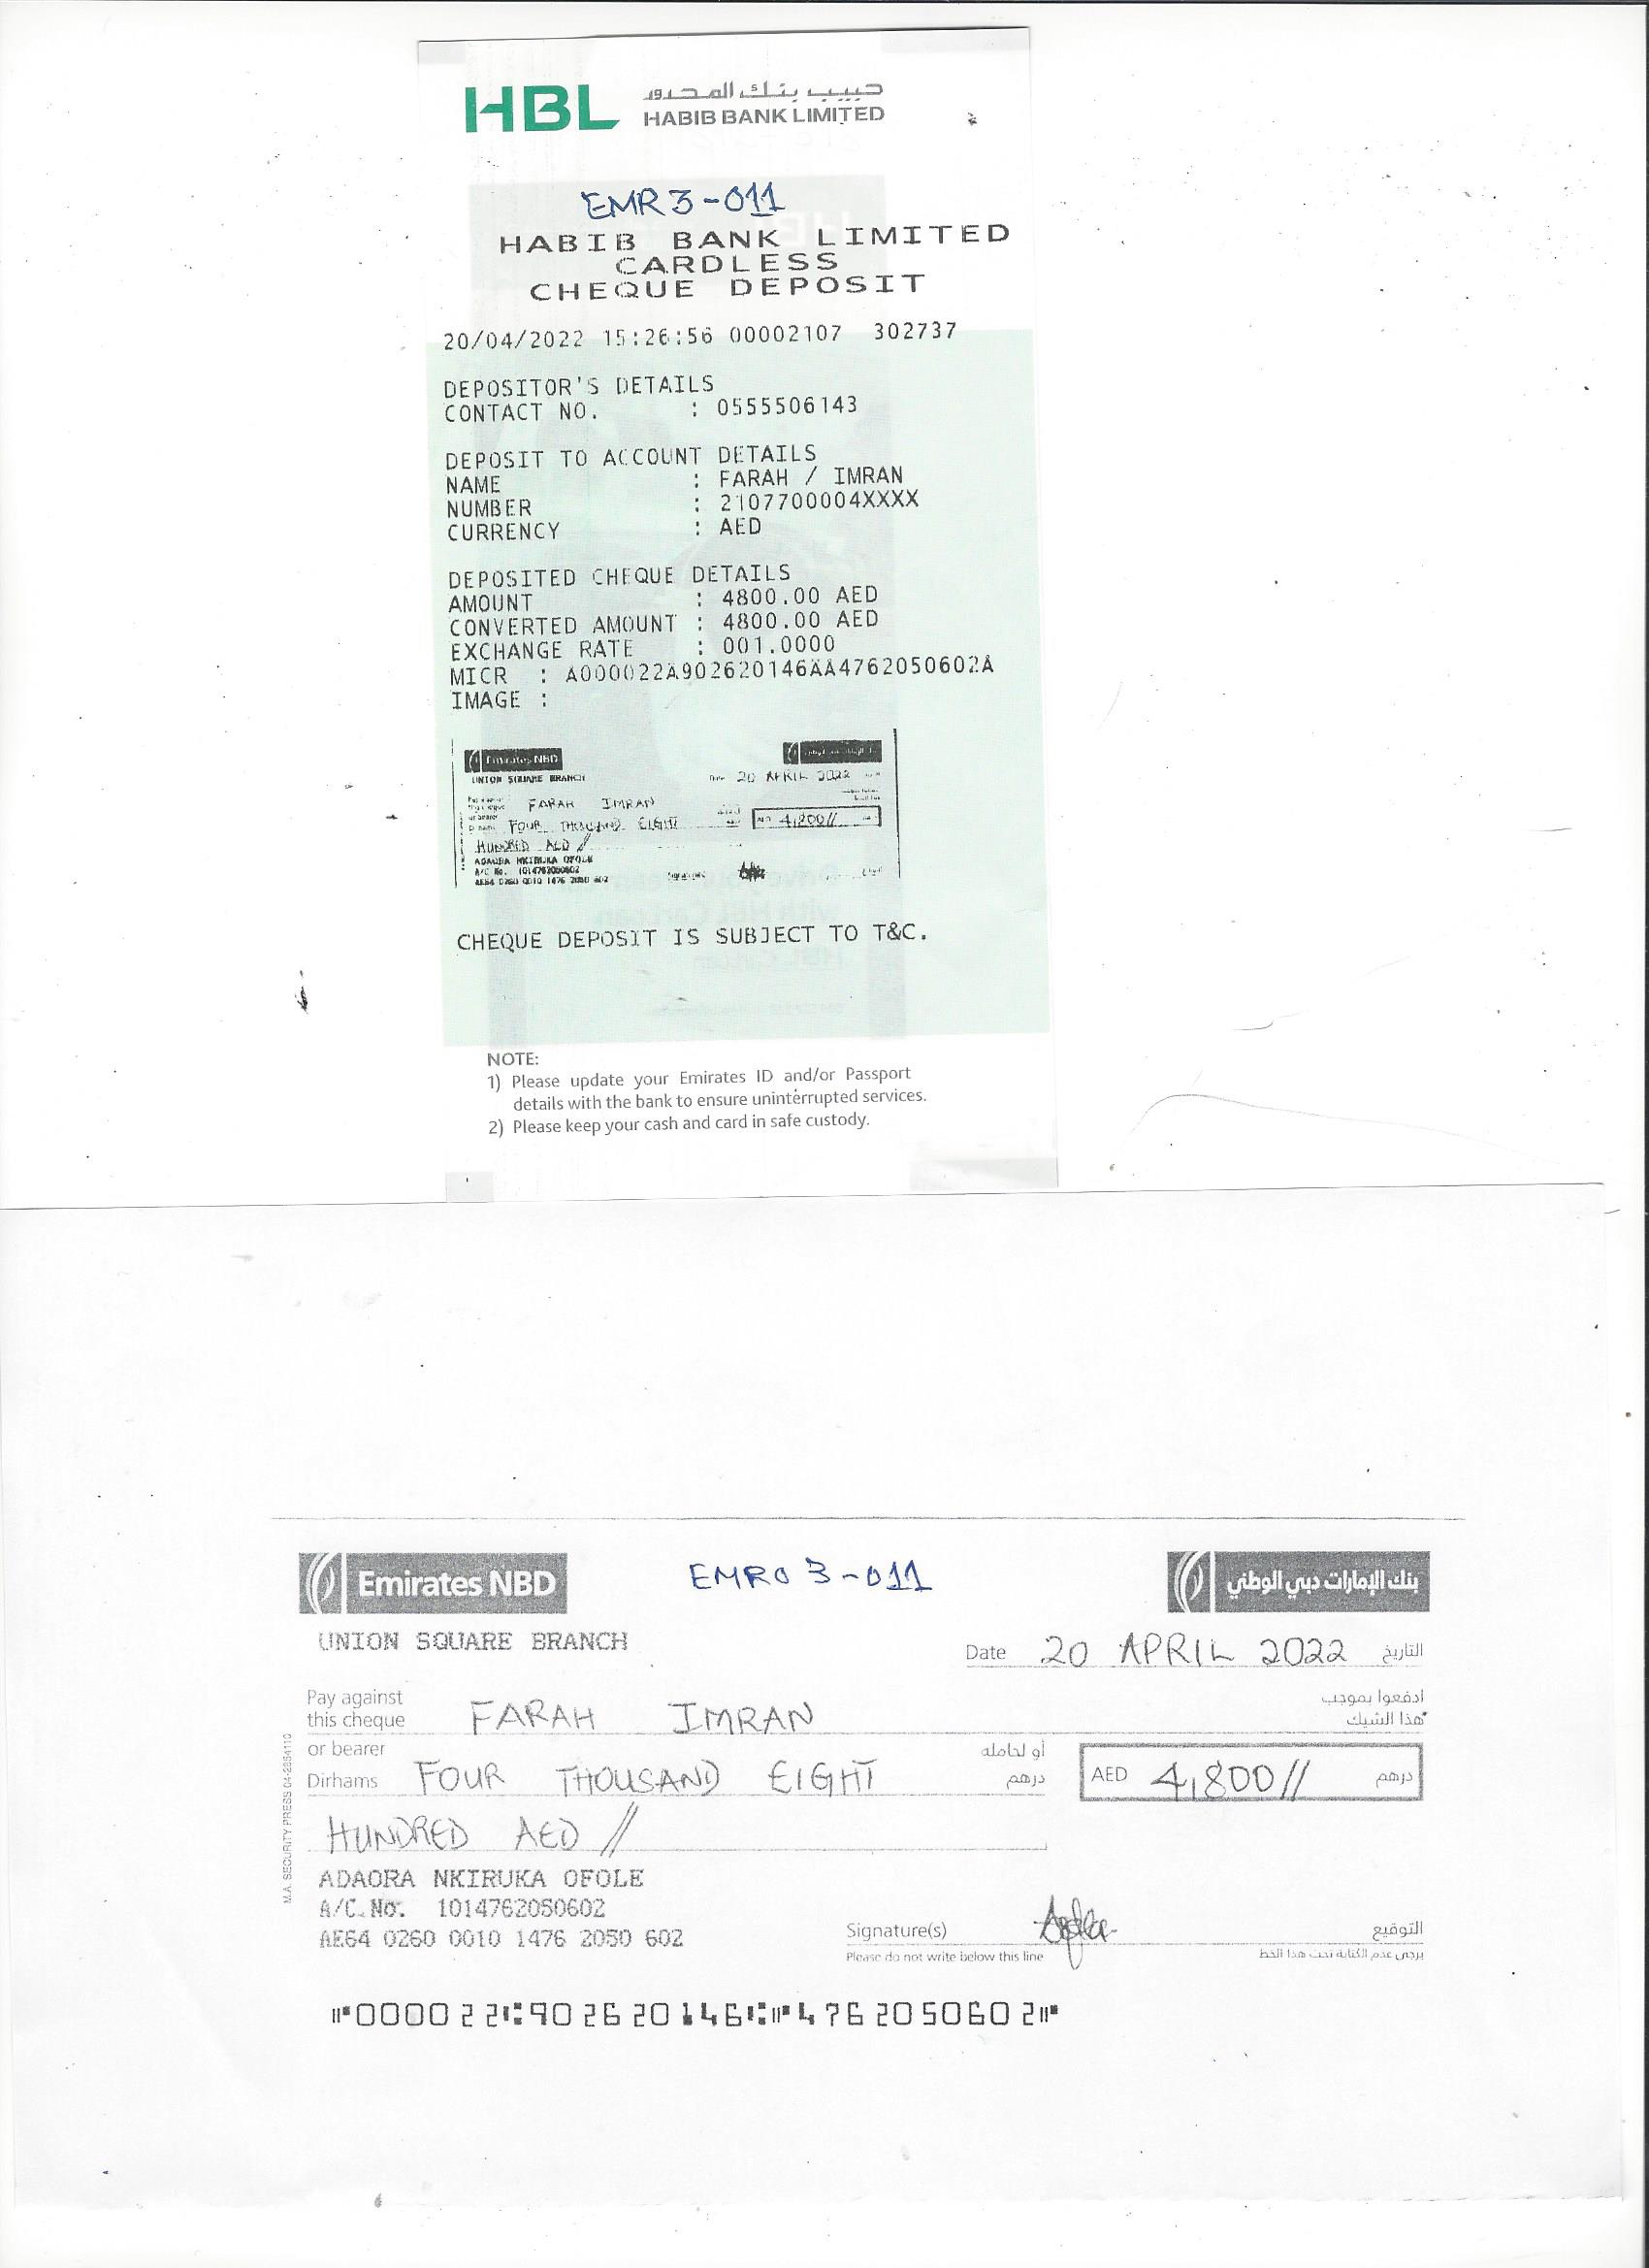 HBL
حبيب بنك المحدود
HABIB BANK LIMITED
EMR 3-011
HABIB BANK LIMITED
CARDLESS
CHEQUE DEPOSIT
20/04/2022 15:26:56 00002107 302737
DEPOSITOR'S DETAILS
CONTACT NO. : 0555506143
DEPOSIT TO ACCOUNT DETAILS
NAME : FARAH / IMRAN
NUMBER : 2107700004XXXX
CURRENCY : AED
DEPOSITED CHEQUE DETAILS
AMOUNT : 4800.00 AED
CONVERTED AMOUNT : 4800.00 AED
EXCHANGE RATE : 001.0000
MICR : A000022A902620146AA4762050602A
IMAGE :
Emirates NBD
UNION SQUARE BRANCH
Date 20 APRIL 2022
FARAH IMRAN
FOUR THOUSAND EIGHT
4,800//
HUNDRED AED //
ADAORA NKIRUKA OFOLE
A/C No. 1014762050602
AE64 0260 0010 1476 2050 602
CHEQUE DEPOSIT IS SUBJECT TO T&C.
NOTE:
1) Please update your Emirates ID and/or Passport
details with the bank to ensure uninterrupted services.
2) Please keep your cash and card in safe custody.
Emirates NBD
EMR03-011
بنك الإمارات دبي الوطني
UNION SQUARE BRANCH
Date 20 APRIL 2022 التاريخ
Pay against
this cheque FARAH IMRAN
ادفعوا بموجب
هذا الشيك
or bearer أو لحامله
Dirhams FOUR THOUSAND EIGHT درهم
AED 4,800// درهم
HUNDRED AED //
ADAORA NKIRUKA OFOLE
A/C. No. 1014762050602
AE64 0260 0010 1476 2050 602
Signature(s) التوقيع
Please do not write below this line يرجى عدم الكتابة تحت هذا الخط
M.A. SECURITY PRESS
⑈000022⑆902620146⑆⑈4762050602⑈